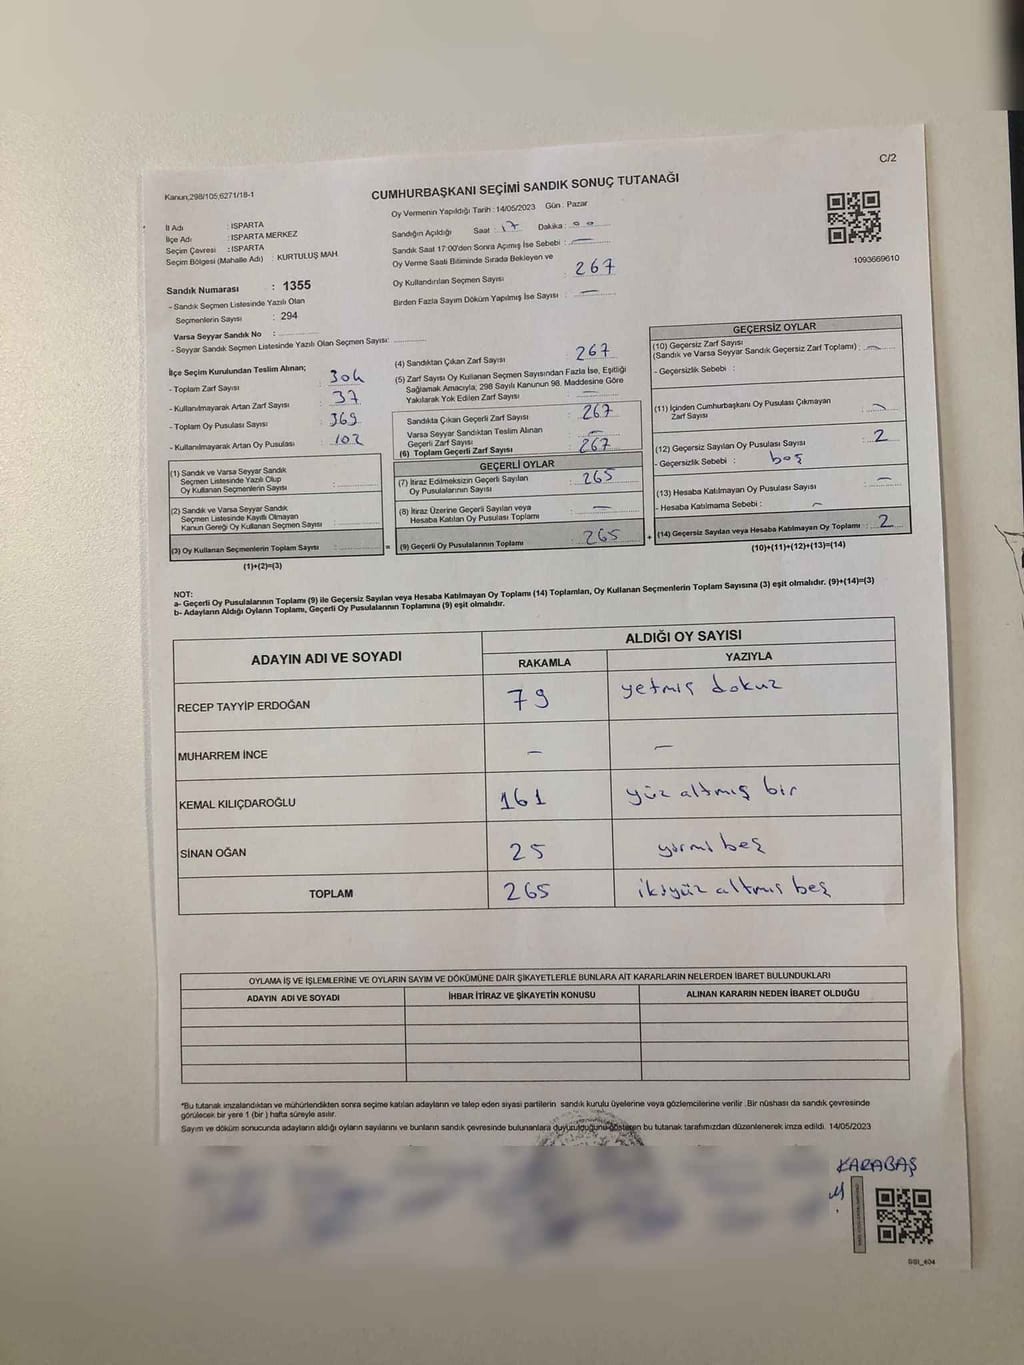 C/2
Kanun,298/105;6271/18-1
CUMHURBAŞKANI SEÇİMİ SANDIK SONUÇ TUTANAĞI
İl Adı : ISPARTA
İlçe Adı : ISPARTA MERKEZ
Seçim Çevresi : ISPARTA
Seçim Bölgesi (Mahalle Adı) : KURTULUŞ MAH.
Sandık Numarası : 1355
- Sandık Seçmen Listesinde Yazılı Olan
Seçmenlerin Sayısı : 294
Varsa Seyyar Sandık No :
- Seyyar Sandık Seçmen Listesinde Yazılı Olan Seçmen Sayısı:
Oy Vermenin Yapıldığı Tarih :14/05/2023 Gün : Pazar
Sandığın Açıldığı Saat : 17 Dakika : 00
Sandık Saat 17:00'den Sonra Açımış İse Sebebi : —
Oy Verme Saati Bitiminde Sırada Bekleyen ve
Oy Kullandırılan Seçmen Sayısı 267
Birden Fazla Sayım Döküm Yapılmış İse Sayısı : —
1093669610
İlçe Seçim Kurulundan Teslim Alınan;
- Toplam Zarf Sayısı 304
- Kullanılmayarak Artan Zarf Sayısı 37
- Toplam Oy Pusulası Sayısı 369
- Kullanılmayarak Artan Oy Pusulası 102
(1) Sandık ve Varsa Seyyar Sandık
Seçmen Listesinde Yazılı Olup
Oy Kullanan Seçmenlerin Sayısı :
(2) Sandık ve Varsa Seyyar Sandık
Seçmen Listesinde Kayıtlı Olmayan
Kanun Gereği Oy Kullanan Seçmen Sayısı :
(3) Oy Kullanan Seçmenlerin Toplam Sayısı :
(1)+(2)=(3)
(4) Sandıktan Çıkan Zarf Sayısı 267
(5) Zarf Sayısı Oy Kullanan Seçmen Sayısından Fazla İse, Eşitliği
Sağlamak Amacıyla, 298 Sayılı Kanunun 98. Maddesine Göre
Yakılarak Yok Edilen Zarf Sayısı : —
Sandıkta Çıkan Geçerli Zarf Sayısı : 267
Varsa Seyyar Sandıktan Teslim Alınan
Geçerli Zarf Sayısı : —
(6) Toplam Geçerli Zarf Sayısı : 267
GEÇERLİ OYLAR
(7) İtiraz Edilmeksizin Geçerli Sayılan
Oy Pusulalarının Sayısı : 265
(8) İtiraz Üzerine Geçerli Sayılan veya
Hesaba Katılan Oy Pusulası Toplamı : —
= (9) Geçerli Oy Pusulalarının Toplamı : 265 +
GEÇERSİZ OYLAR
(10) Geçersiz Zarf Sayısı
(Sandık ve Varsa Seyyar Sandık Geçersiz Zarf Toplamı) : —
- Geçersizlik Sebebi :
(11) İçinden Cumhurbaşkanı Oy Pusulası Çıkmayan
Zarf Sayısı : —
(12) Geçersiz Sayılan Oy Pusulası Sayısı : 2
- Geçersizlik Sebebi : boş
(13) Hesaba Katılmayan Oy Pusulası Sayısı : —
- Hesaba Katılmama Sebebi : —
(14) Geçersiz Sayılan veya Hesaba Katılmayan Oy Toplamı : 2
(10)+(11)+(12)+(13)=(14)
NOT:
a- Geçerli Oy Pusulalarının Toplamı (9) ile Geçersiz Sayılan veya Hesaba Katılmayan Oy Toplamı (14) Toplamları, Oy Kullanan Seçmenlerin Toplam Sayısına (3) eşit olmalıdır. (9)+(14)=(3)
b- Adayların Aldığı Oyların Toplamı, Geçerli Oy Pusulalarının Toplamına (9) eşit olmalıdır.
ADAYIN ADI VE SOYADI ALDIĞI OY SAYISI
RAKAMLA YAZIYLA
RECEP TAYYİP ERDOĞAN 79 yetmiş dokuz
MUHARREM İNCE — —
KEMAL KILIÇDAROĞLU 161 yüz altmış bir
SİNAN OĞAN 25 yirmi beş
TOPLAM 265 ikiyüz altmış beş
OYLAMA İŞ VE İŞLEMLERİNE VE OYLARIN SAYIM VE DÖKÜMÜNE DAİR ŞİKAYETLERLE BUNLARA AİT KARARLARIN NELERDEN İBARET BULUNDUKLARI
ADAYIN ADI VE SOYADI İHBAR İTİRAZ VE ŞİKAYETİN KONUSU ALINAN KARARIN NEDEN İBARET OLDUĞU
*Bu tutanak imzalandıktan ve mühürlendikten sonra seçime katılan adayların ve talep eden siyasi partilerin sandık kurulu üyelerine veya gözlemcilerine verilir .Bir nüshası da sandık çevresinde
görülecek bir yere 1 (bir ) hafta süreyle asılır.
Sayım ve döküm sonucunda adayların aldığı oyların sayılarını ve bunların sandık çevresinde bulunanlara duyurulduğunu gösteren bu tutanak tarafımızdan düzenlenerek imza edildi. 14/05/2023
KARABAŞ